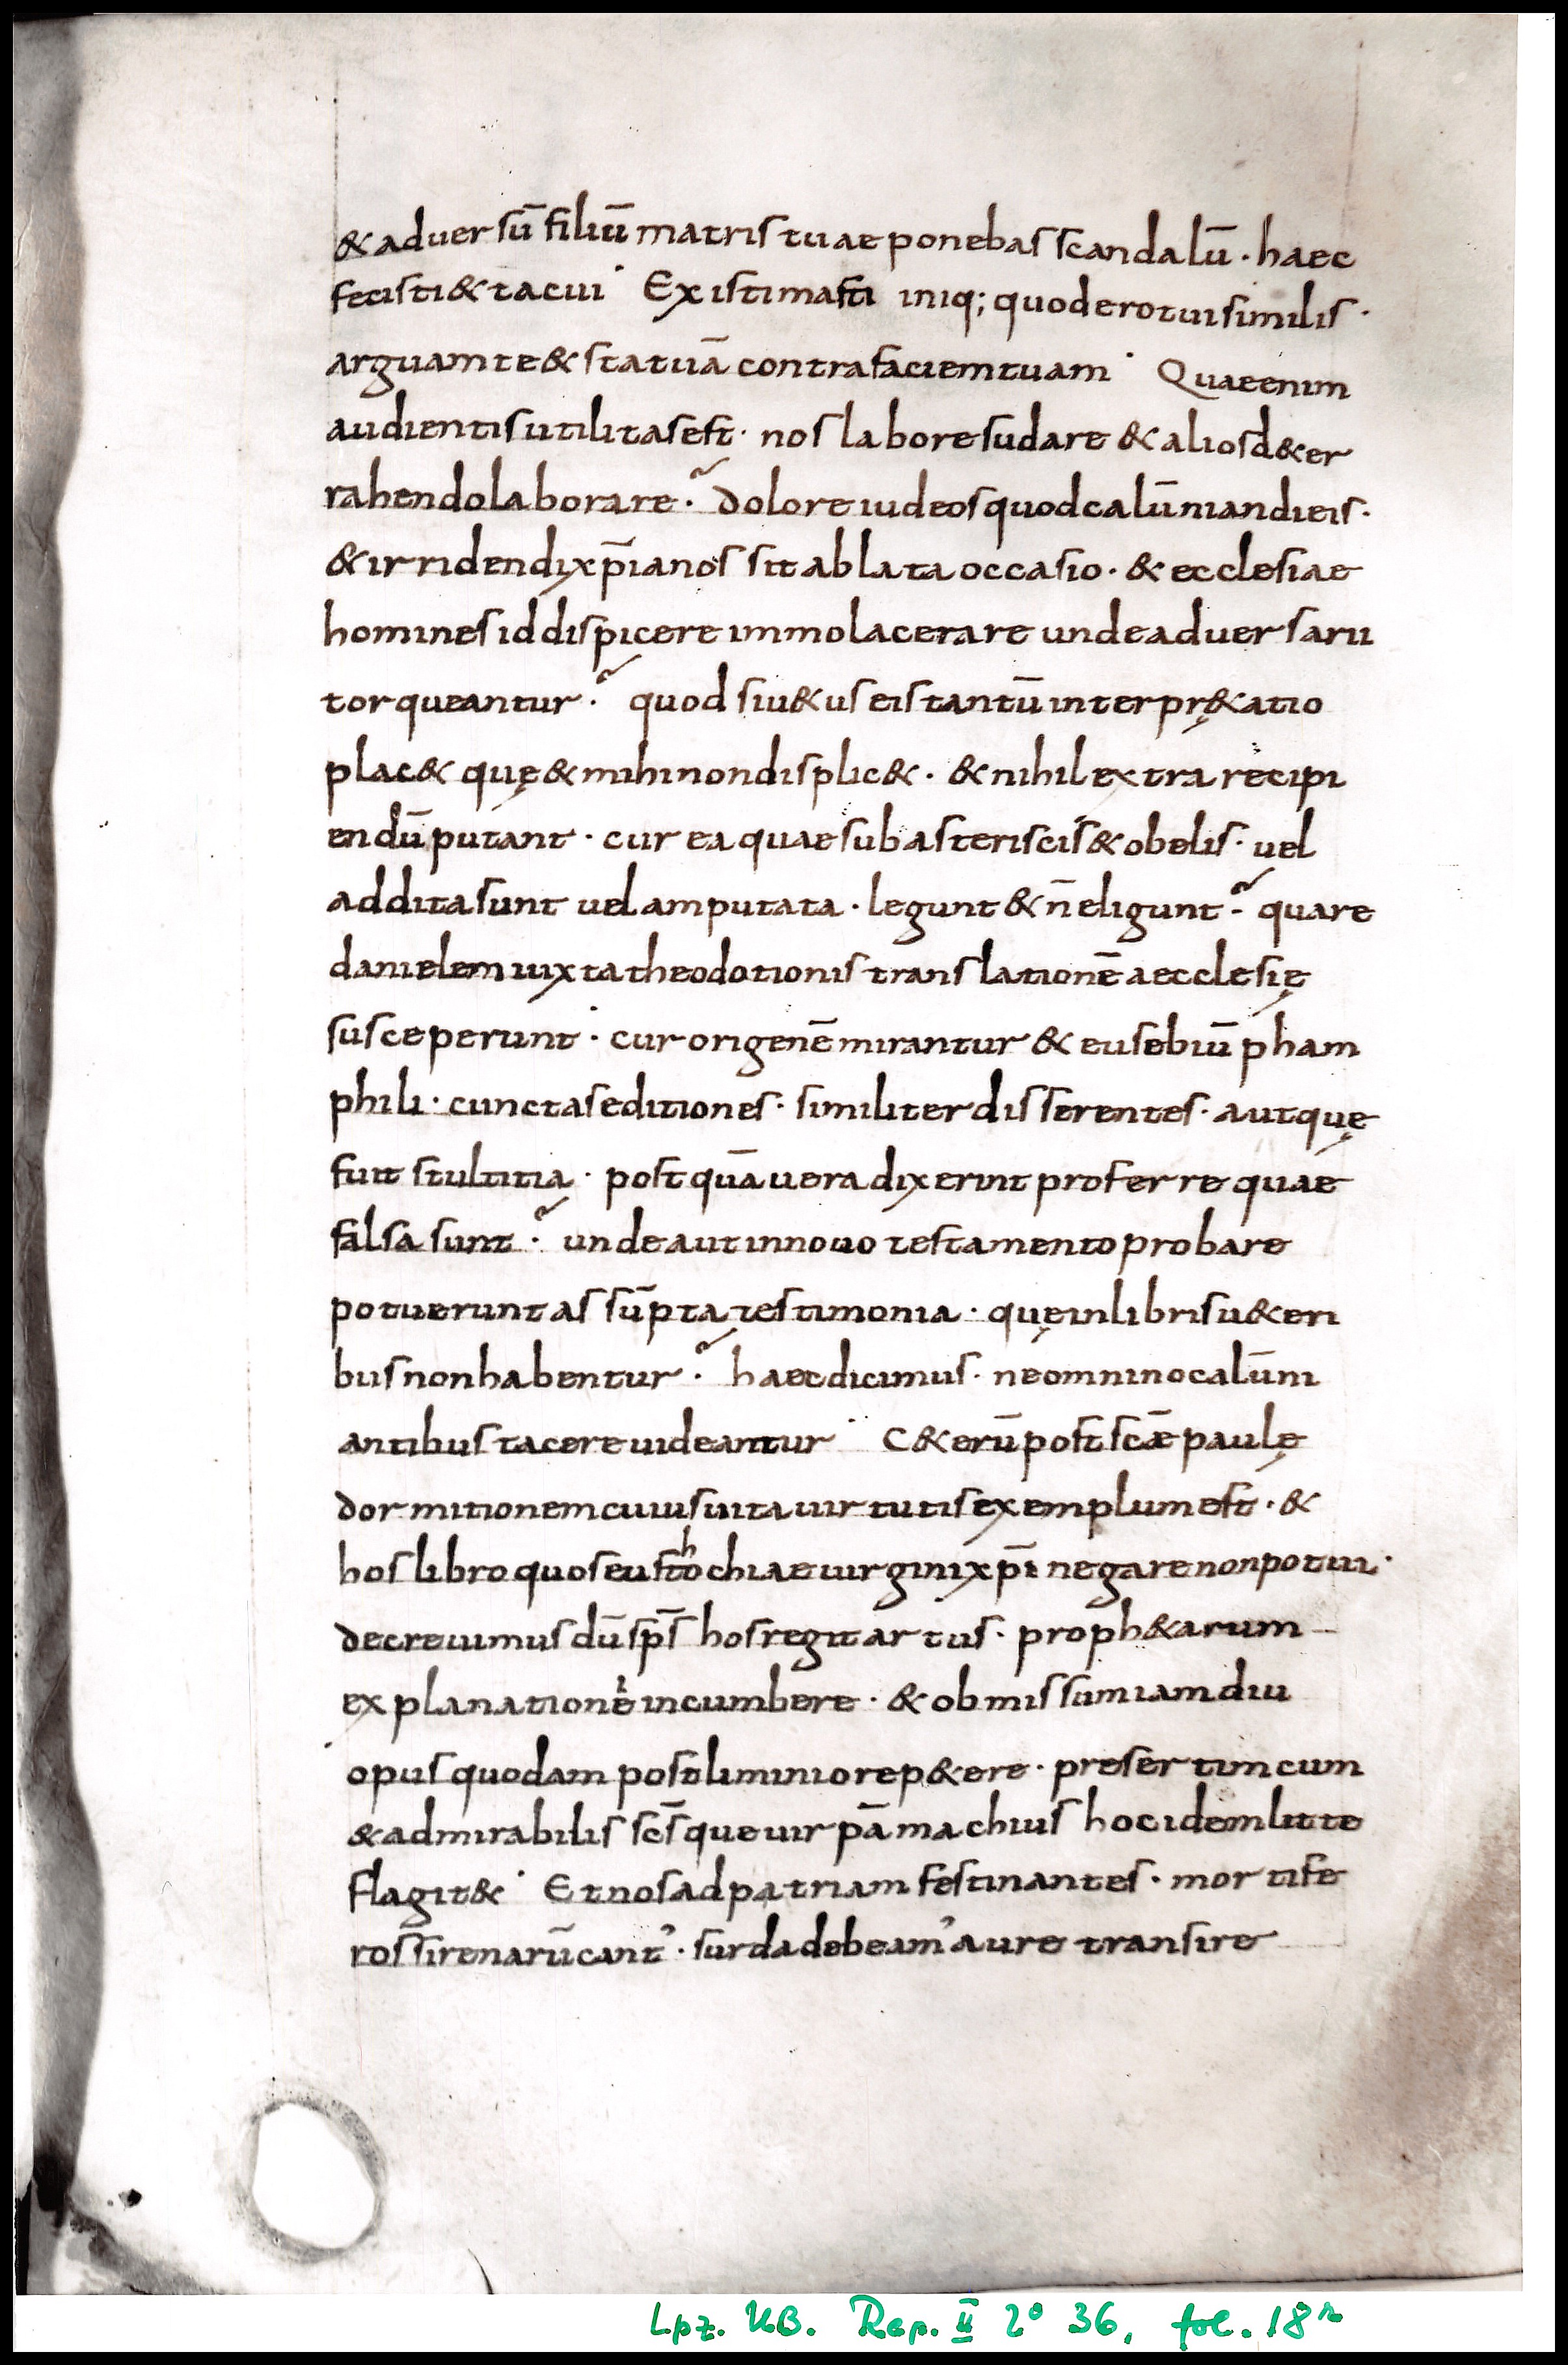 & aduersū filiū matris tuae ponebas scandalū · haec
fecisti & tacui · Existimasti iniq; quod ero tui similis ·
arguam te & statuā contra faciem tuam · Quae enim
audientis utilitas est · nos labore sudare & alios d&er
rahendo laborare · dolore iudeos quod calūniandi eis ·
& irridendi xp̄ianos sit ablata occasio · & ecclesiae
homines id dispicere immo lacerare unde aduersarii
torqueantur · quod si u&us eis tantū interpr&atio
plac& quę & mihi non displic& · & nihil extra recipi
endū putant · cur ea quae sub asteriscis & obelis · uel
addita sunt uel amputata · legunt & n̄ eligunt · quare
danielem iuxta theodotionis translationē aecclesię
susceperunt · cur origenē mirantur & eusebiū pham
phili · cunctas editiones · similiter disserentes · aut quę
fuit stultitia · postquā uera dixerint proferre quae
falsa sunt · unde aut in nouo testamento probare
potuerunt assūpta testimonia · quę in libris u&eri
bus non habentur · haec dicimus · ne omnino calūni
antibus tacere uideantur · C&erū post sc̄æ paulę
dormitionem cuius uita uirtutis exemplum est · &
hos libro quos eustochiae uirgini xp̄i negare non potui ·
decreuimus dū sp̄s hos regit artus · proph&arum
explanationė incumbere · & obmissum iam diu
opus quodam postliminio rep&ere · presertim cum
& admirabilis sc̄s que uir pāmachius hoc idem litte
flagit& · Et nos ad patriam festinantes · mortife
ros sirenarū cant' · surda debeam' aure transire
Lpz. UB. Rep. II 2° 36, fol. 18r